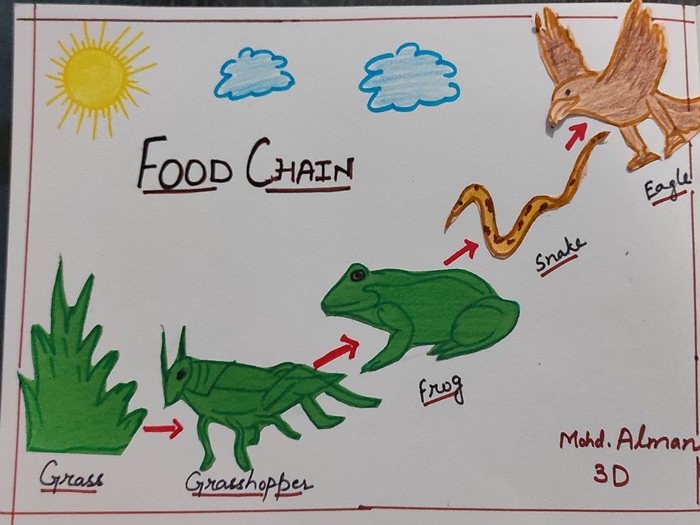 FOOD CHAIN
Eagle
Snake
Frog
Grass
Grasshopper
Mohd. Alman
3D